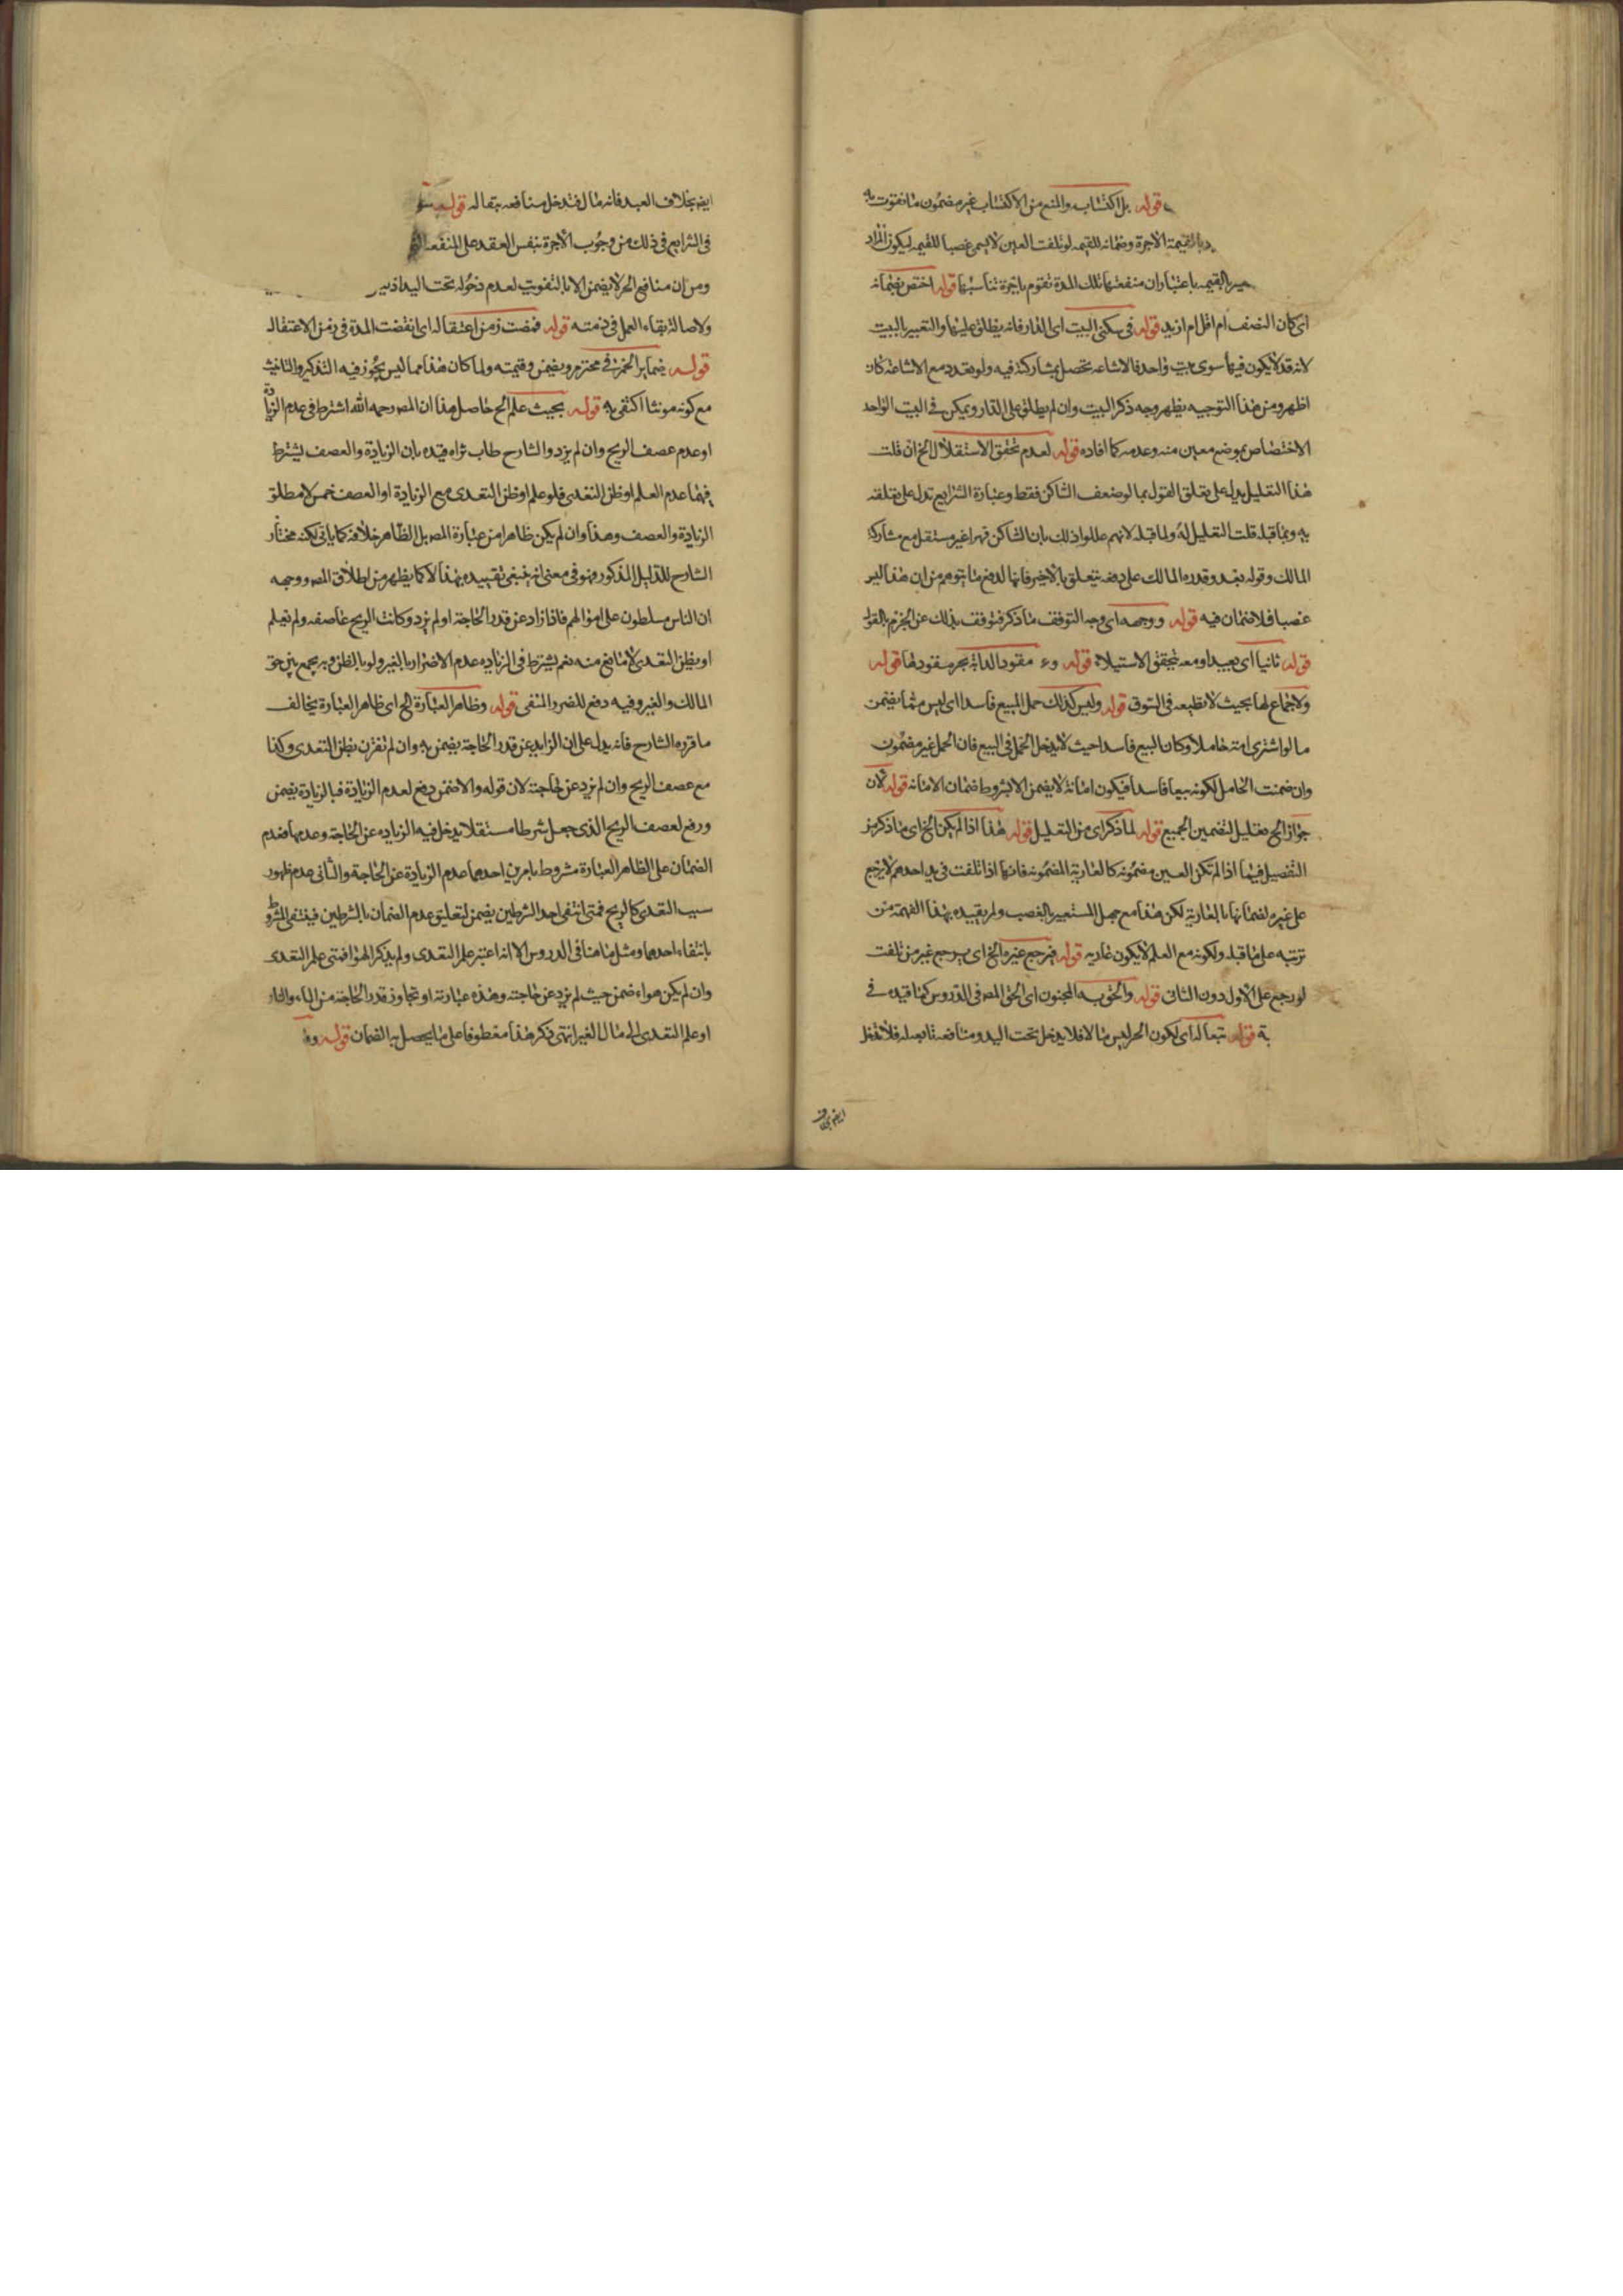 قوله بل اكتسابه والمنع من الاكتساب غير مضمون ما يفوت به
القيمة الاجرة وضمانه للقيمه لو تلفت العين لا يسمى غصبا للقيمه ليكون المراد
بالقيمه باعتبار ان منفعتها تلك المدة تقوم باجرة تناسبها قوله اختص بضمانه
اى كان النصف ام اقل ام ازيد قوله فى سكنى البيت اى الدار فانه يطلق عليها والتعبير بالبيت
لانه قد لا يكون فيها سوى بيت واحد فالاشاعه تحصل بمشاركته فيه ولو تعدد مع الاشاعة كان
اظهر ومن هذا التوجيه يظهر وجه ذكر البيت وان لم يطلق على الدار ويمكن فى البيت الواحد
الاختصاص بموضع معين منه وعدمه كما افاده قوله لعدم تحقق الاستقلال الخ ان قلت
هذا التعليل يدل على تعلق القول بما لو ضعف الساكن فقط وعبارة الشرايع تدل على تعلقه
به وبما قبله قلت التعليل له ولما قبله لانهم عللوا ذلك بان الساكن قهرا غير مستقل مع مشاركة
المالك وقوله بعد وقدره المالك على دفعه يتعلق بالاخير فانها لدفع ما يتوهم من ان هذا ليس
غصبا فلا ضمان فيه قوله ووجهه اى وجه التوقف ما ذكر فتوقف بذلك عن الجزم بالقول
قوله ثانيا اى بعيدا ومعه تحقق الاستيلاء قوله و مقود الدابة بجر مقودها قوله
ولا جماع لها بحيث لا تطيعه فى السوق قوله وليس كذلك حمل المبيع فاسدا اى ليس مما يضمن
ما لو اشترى امة حاملا وكان البيع فاسدا حيث لا يدخل الحمل فى البيع فان الحمل غير مضمون
وان ضمنت الحامل لكونه بيعا فاسدا فيكون امانة لا يضمن الا بشروط ضمان الامانه قوله لان
جواز الخ تعليل لتضمين الجميع قوله لما ذكر اى من التعليل قوله هذا اذا لم يكن الخ اى ما ذكر من
التفصيل فيما اذا لم تكن العين مضمونه كالعارية المضمونه فانها اذا تلفت فى يد احدهم لا يرجع
على غيره لضمانها بالعارية لكن هذا مع جهل المستعير بالغصب ولم يقيده بهذا لفهمه من
ترتبه على ما قبله ولكونه مع العلم لا يكون عارية قوله فيرجع غيره الخ اى يرجع غير من تلفت
لو رجع على الاول دون الثانى قوله والحق به المجنون اى الحق المصـ فى الدروس كذا قيده فى
قوله تبعا له اى لكون الحر ليس مالا فلا يدخل تحت اليد ومنافعه تابعة له فلا تدخل
ايضـ بخلاف
ايضـ بخلاف العبد فانه مال فتدخل منافعه تبعا له قوله
فى الشرايع فى ذلك من وجوب الاجرة بنفس العقد على المنفعة
ومن ان منافع الحر لا يضمن الا بالتفويت لعدم دخوله تحت اليد اذ ليس
ولاصالة بقاء العمل فى ذمته قوله فمضت زمن اعتقاله اى انقضت المدة فى زمن الاعتقال
قوله خمر الخ محترم ويضمن وقيمته ولما كان هذا مما ليس يجوز فيه التذكير والتانيث
مع كونه مونثا اكتفى به قوله بحيث علم الخ حاصل هذا ان المصـ رحمه الله اشترط فى عدم الزيادة
او عدم عصف الريح وان لم يزد والشارح طاب ثراه قيده بان الزيادة والعصف يشترط
فيهما عدم العلم او ظن التعدى فلو علم او ظن التعدى مع الزيادة او العصف ضمن لا مطلق
الزيادة والعصف وهذا وان لم يكن ظاهرا من عبارة المصـ بل الظاهر خلافه كما ياتى لكنه مختار
الشارح للدليل المذكور وهو فى معنى انه ينبغى تقييده بهذا لا كما يظهر من اطلاق المصـ ووجهه
ان الناس مسلطون على اموالهم فاذا زاد عن قدر الحاجة او لم يزد وكانت الريح عاصفه ولم تعلم
او يظن التعدى لا مانع منه نعم يشترط فى الزياده عدم الاضرار بالغير ولو بالظن وبه يجمع بين حق
المالك والغير وفيه دفع للضرر المنفى قوله وظاهر العبارة الخ اى ظاهر العبارة يخالف
ما قرره الشارح فانه يدل على ان الزايد عن قدر الحاجة يضمن به وان لم تقترن بظن التعدى وكذا
مع عصف الريح وان لم يزد عن حاجته لان قوله والا ضمن رفع لعدم الزيادة فبالزيادة يضمن
ورفع لعصف الريح الذى جعل شرطا مستقلا يدخل فيه الزياده عن الحاجة وعدمها فعدم
الضمان على الظاهر العبارة مشروط بامرين احدهما عدم الزيادة عن الحاجة والثانى عدم ظهور
سبب التعدى كالريح فمتى انتفى احد الشرطين يضمن لتعليق عدم الضمان بالشرطين فينتفى المشروط
بانتفاء احدهما ومثل ما هنا فى الدروس الا انه اعتبر علم التعدى ولم يذكر الهواء فمتى علم التعدى
وان لم يكن هواء ضمن حيث لم يزد عن حاجته وهذه عبارته او تجاوز قدر الحاجة من الماء والنار
او علم التعدى الى مال الغير انتهى ذكر هذا معطوفا على ما يحصل به الضمان قوله